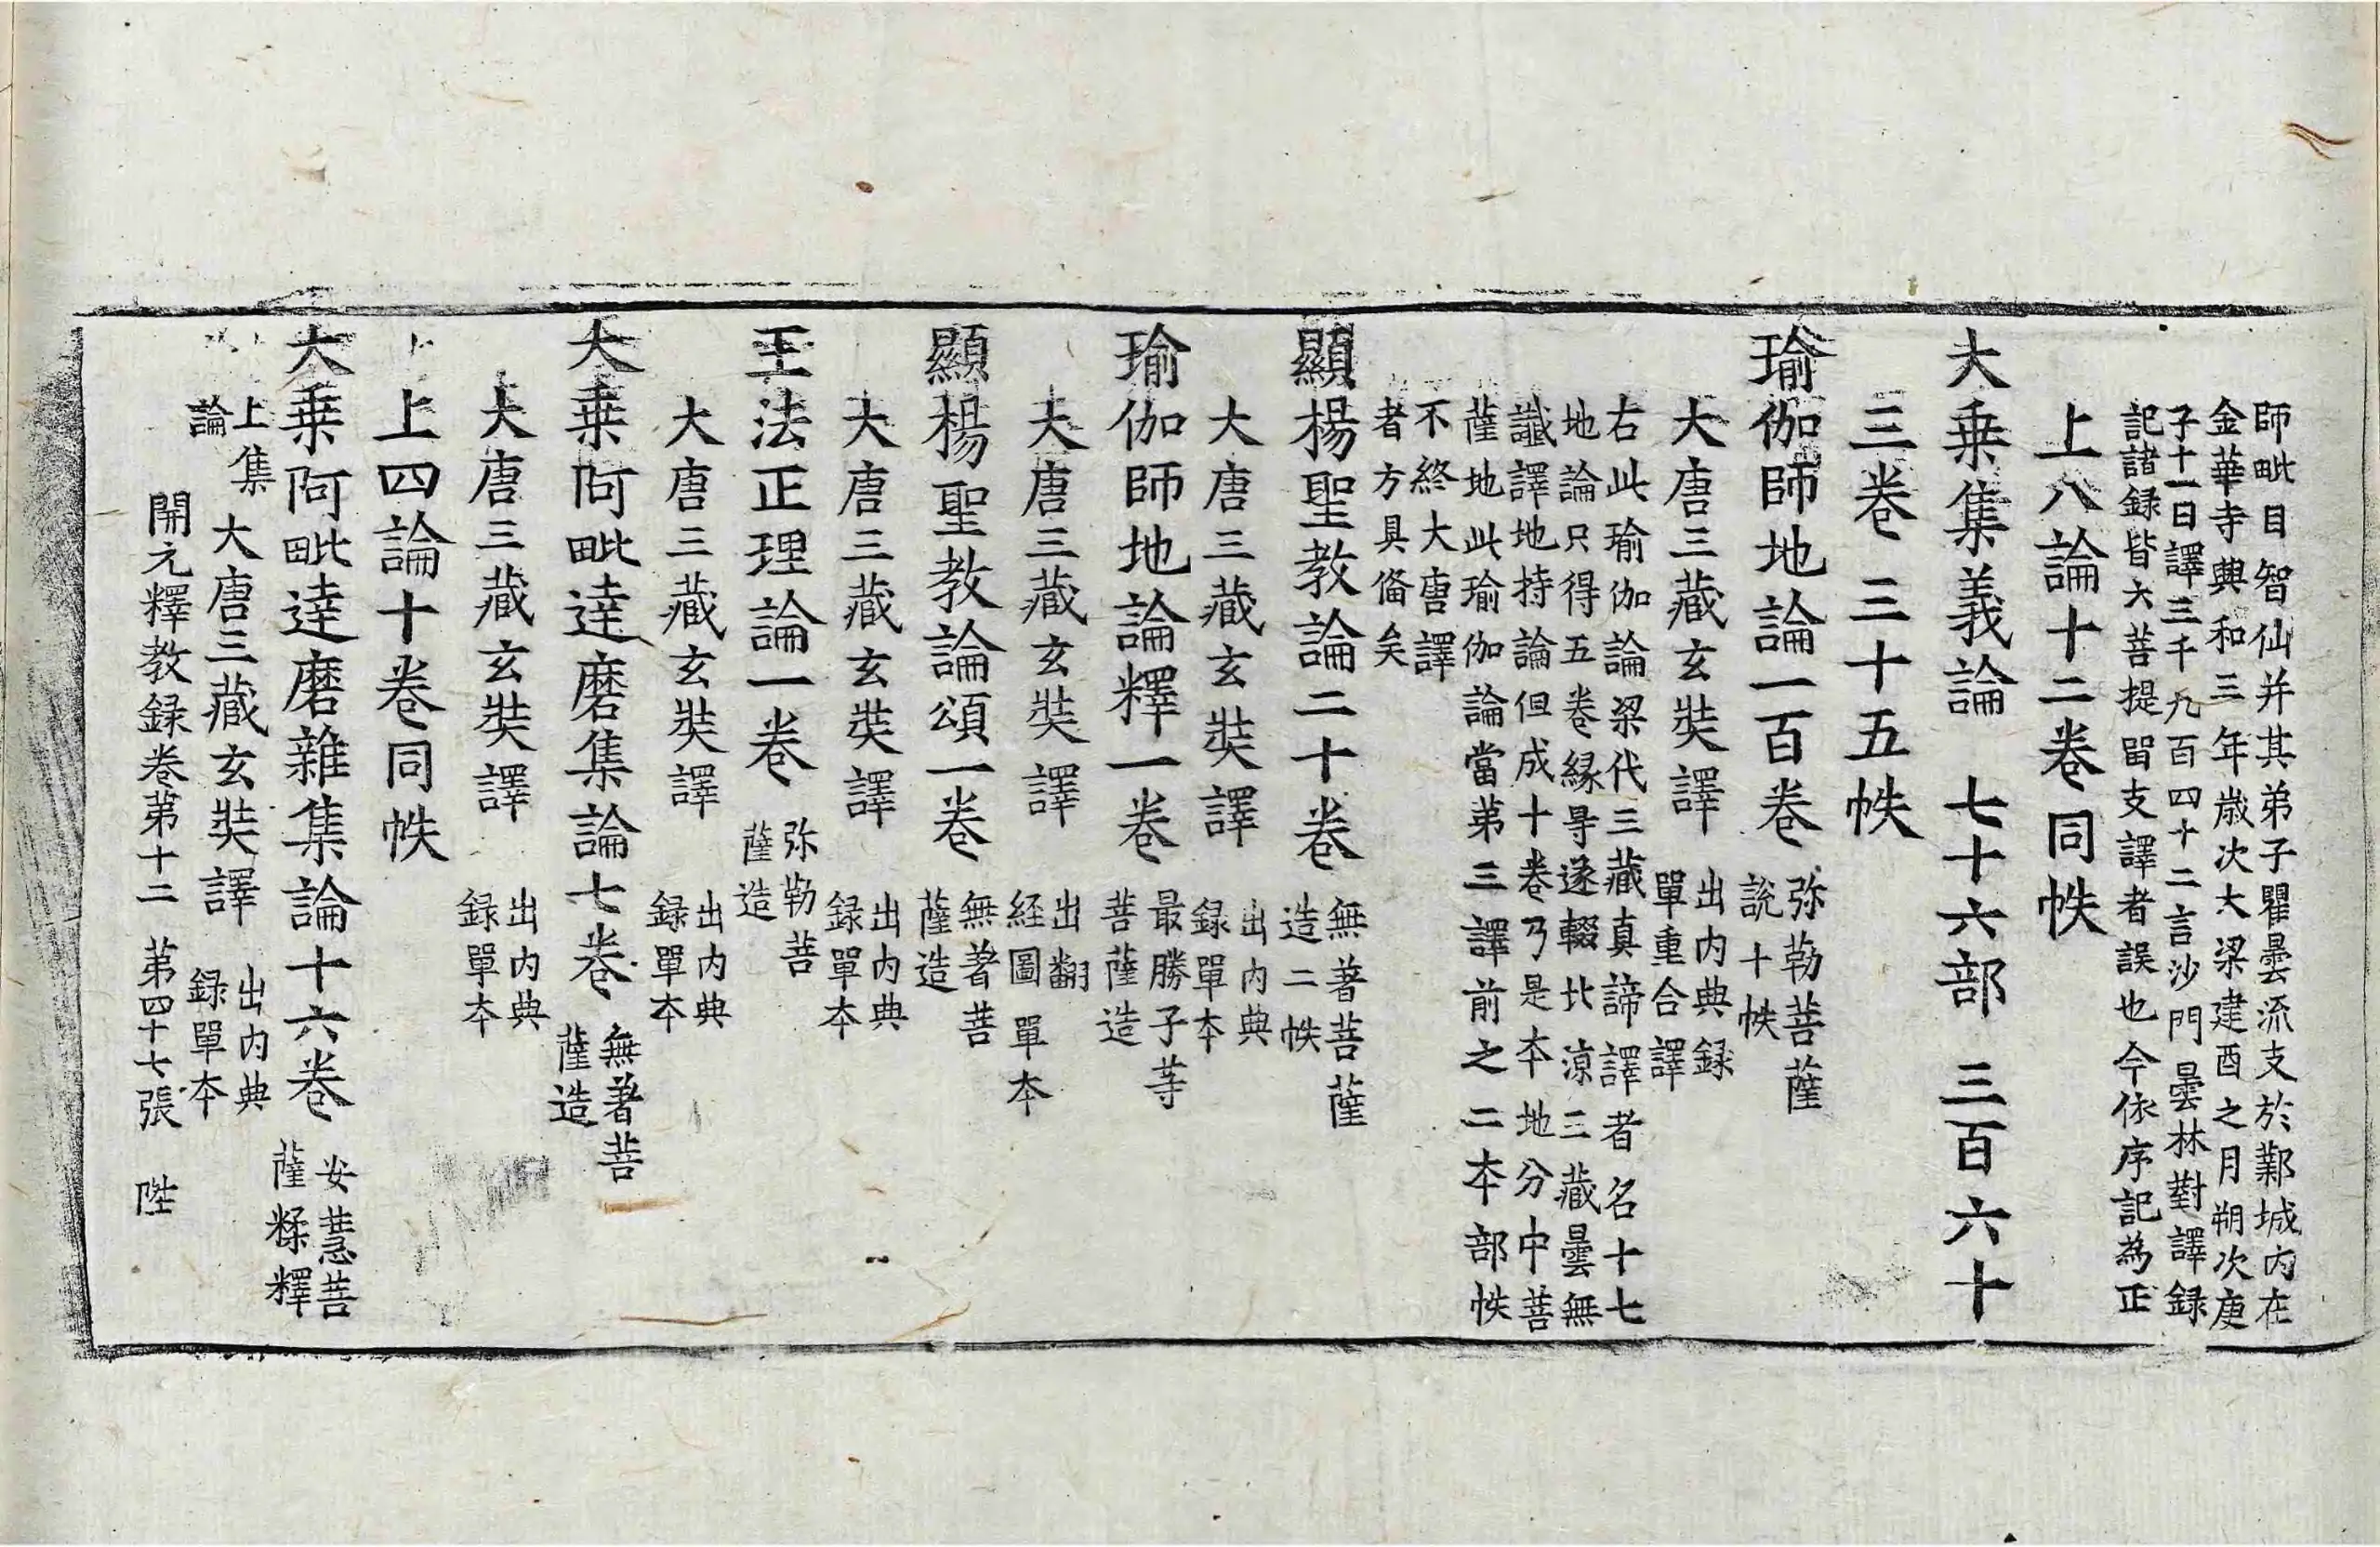 師毗目智仙并其弟子瞿曇流支於鄴城内在
金華寺興和三年歳次大梁建酉之月朔次庚
子十一日譯三千九百四十二言沙門曇林對譯録
記諸録皆六菩提畱支譯者誤也今依序記為正
上八論十二卷同帙
大乗集義論 七十六部 三百六十
三卷 三十五帙
瑜伽師地論一百卷
弥勒菩薩
説十帙
大唐三藏玄奘譯
出内典録
單重合譯
右此瑜伽論梁代三藏真諦譯者名十七
地論只得五卷縁㝵遂輟北涼三藏曇無
讖譯地持論但成十卷乃是本地分中菩
薩地此瑜伽論當苐三譯前之二本部帙
不終大唐譯
者方具俻矣
顯楊聖教論二十卷
無著菩薩
造二帙
大唐三藏玄奘譯
出内典
録單本
瑜伽師地論釋一卷
最勝子䓁
菩薩造
大唐三藏玄奘譯
出翻
経圖單本
顯楊聖教論頌一卷
無著菩
薩造
大唐三藏玄奘譯
出内典
録單本
王法正理論一卷
弥勒菩
薩造
大唐三藏玄奘譯
出内典
録單本
大乗阿毗逹磨集論七卷
無著菩
薩造
大唐三藏玄奘譯
出内典
録單本
上四論十卷同帙
大乗阿毗逹磨雜集論十六卷
安慧菩
薩糅釋
上集
論
大唐三藏玄奘譯
出内典
録單本
開元釋教録卷苐十二 苐四十七張 陛